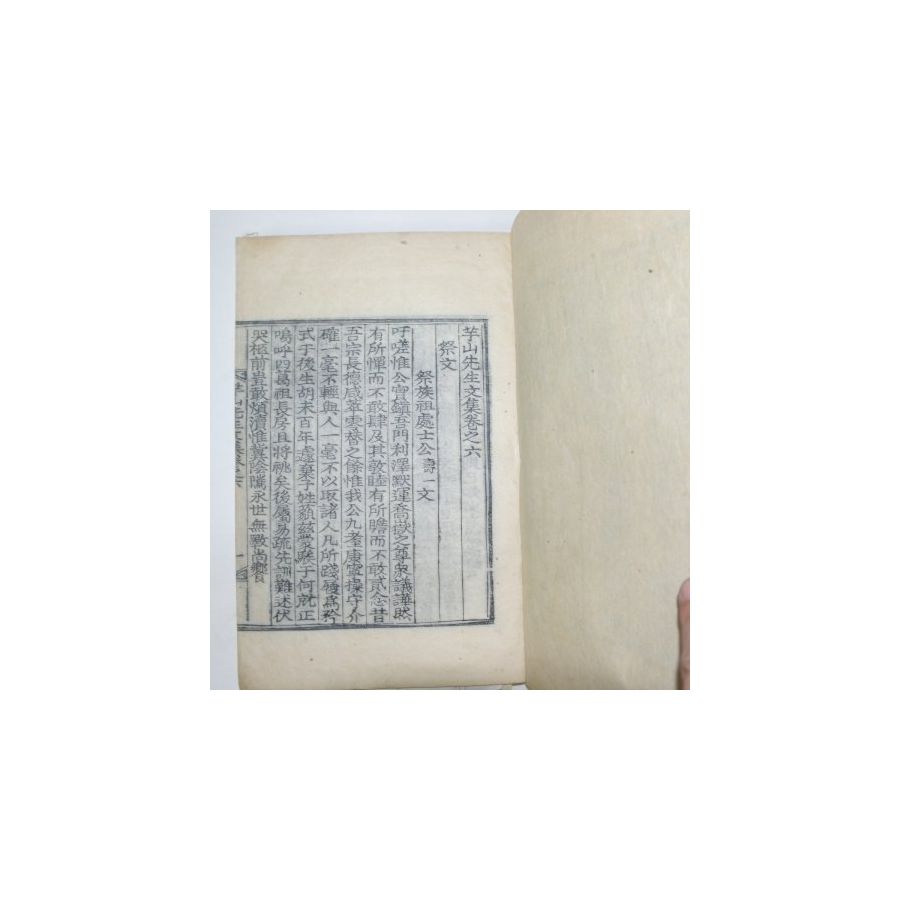 芋山先生文集卷之六
祭文
祭族祖處士公壽一文
吁嗟惟公實鎭吾門利澤默運喬嶽之尊衆議譁然
有所憚而不敢肆及其敦睦有所贍而不敢貳念昔
吾宗長德咸萃雲替之餘惟我公九耋康寧操守介
確一毫不輕與人一毫不以取諸人凡所踐履爲矜
式于後生胡未百年遽棄子姓藐玆孱于何就正
嗚呼四葛祖長房且將祧矣後屬易疏先訓難述伏
哭柩前豈敢煩瀆惟冀陰隲永世無斁尙饗